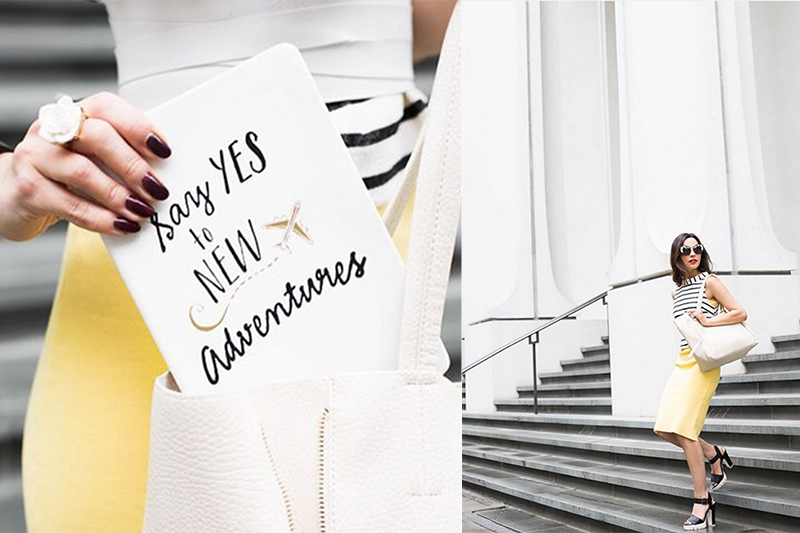 Say YES
to
NEW
Adventures